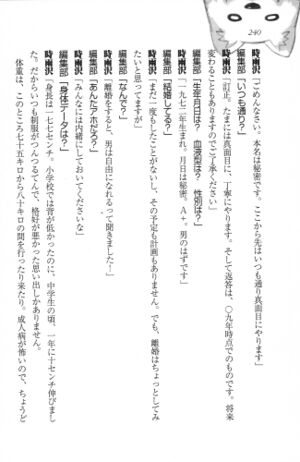 240
時雨沢「ごめんなさい。本名は秘密です。ここから先はいつも通り真面目にやります」
編集部「いつも通り？」
時雨沢「訂正。たまには真面目に、丁寧にやります。そして返答は、〇九年時点でのものです。将来
変わることもありますのでご了承ください」
編集部「生年月日は？　血液型は？　性別は？」
時雨沢「一九七二年生まれ。月日は秘密。A+。男のはずです」
編集部「結婚してる？」
時雨沢「まだ一度もしたことがないし、その予定も計画もありません。でも、離婚はちょっとしてみ
たいと思ってますが」
編集部「なんで？」
時雨沢「離婚をすると、男は自由になれるって聞きました！」
編集部「あんたアホだろ？」
時雨沢「みんなには内緒にしておいてくださいな」
編集部「身体データは？」
時雨沢「身長は一七七センチ。小学校では背が低かったのに、中学生の頃、一年に十センチ伸びまし
た。だからいつも制服がつんつるてんで、格好が悪かった思い出しかありません。
体重は、このところ七十五キロから八十キロの間を行ったり来たり。成人病が怖いので、ちょうど